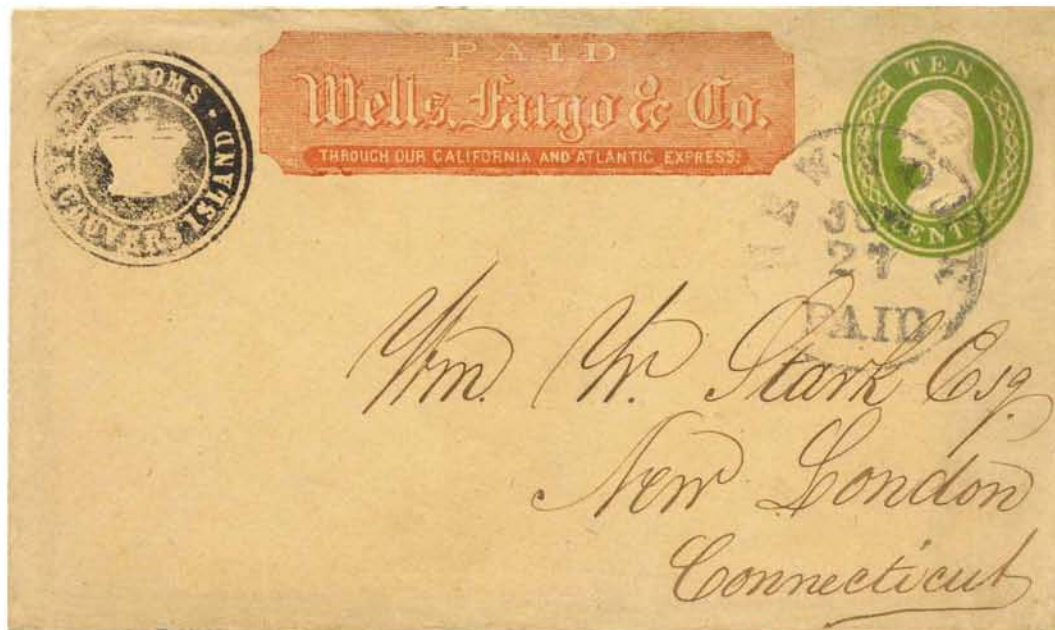 CUSTOMS · H.M. COUVERS ISLAND
PAID
Wells, Fargo & Co.
THROUGH OUR CALIFORNIA AND ATLANTIC EXPRESS.
TEN
CENTS
27
PAID
Wm. W. Stark Esq
New London
Connecticut